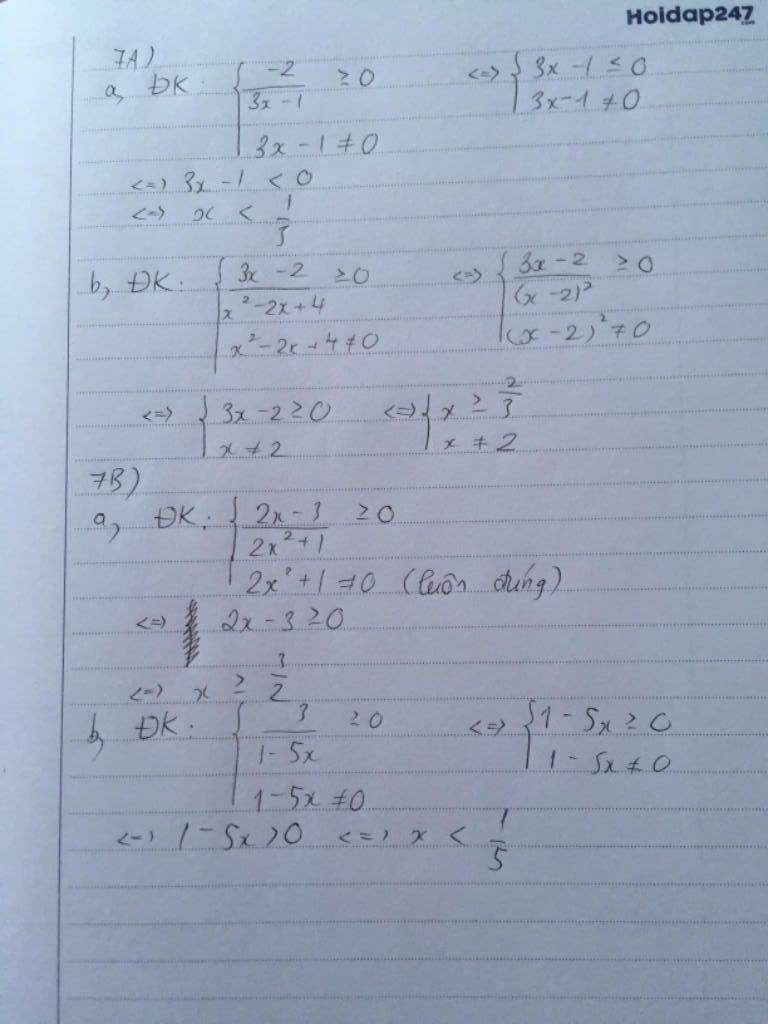 Hoidap247
.com
7A)
a, ĐK: { -2/(3x-1) ≥ 0 <=> { 3x-1 ≤ 0
3x-1 ≠ 0 3x-1 ≠ 0
<=> 3x-1 < 0
<=> x < 1/3
b, ĐK: { (3x-2)/(x²-2x+4) ≥ 0 <=> { (3x-2)/(x-2)² ≥ 0
x²-2x+4 ≠ 0 (x-2)² ≠ 0
<=> { 3x-2 ≥ 0 <=> { x ≥ 2/3
x ≠ 2 x ≠ 2
7B)
a, ĐK: { (2x-3)/(2x²+1) ≥ 0
2x²+1 ≠ 0 (luôn đúng)
<=> 2x-3 ≥ 0
<=> x ≥ 3/2
b, ĐK: { 3/(1-5x) ≥ 0 <=> { 1-5x ≥ 0
1-5x ≠ 0 1-5x ≠ 0
<=> 1-5x > 0 <=> x < 1/5